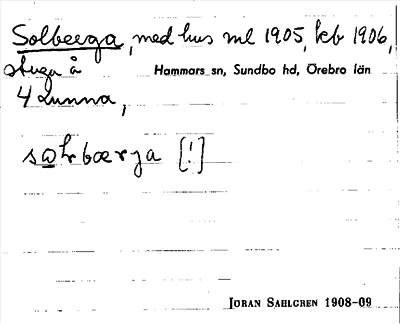 Solberga, med hus ml 1905, kb 1906,
stuga å Hammars sn, Sundbo hd, Örebro län
4 Lunna,
sohrbærja [!]
JÖRAN SAHLGREN 1908-09